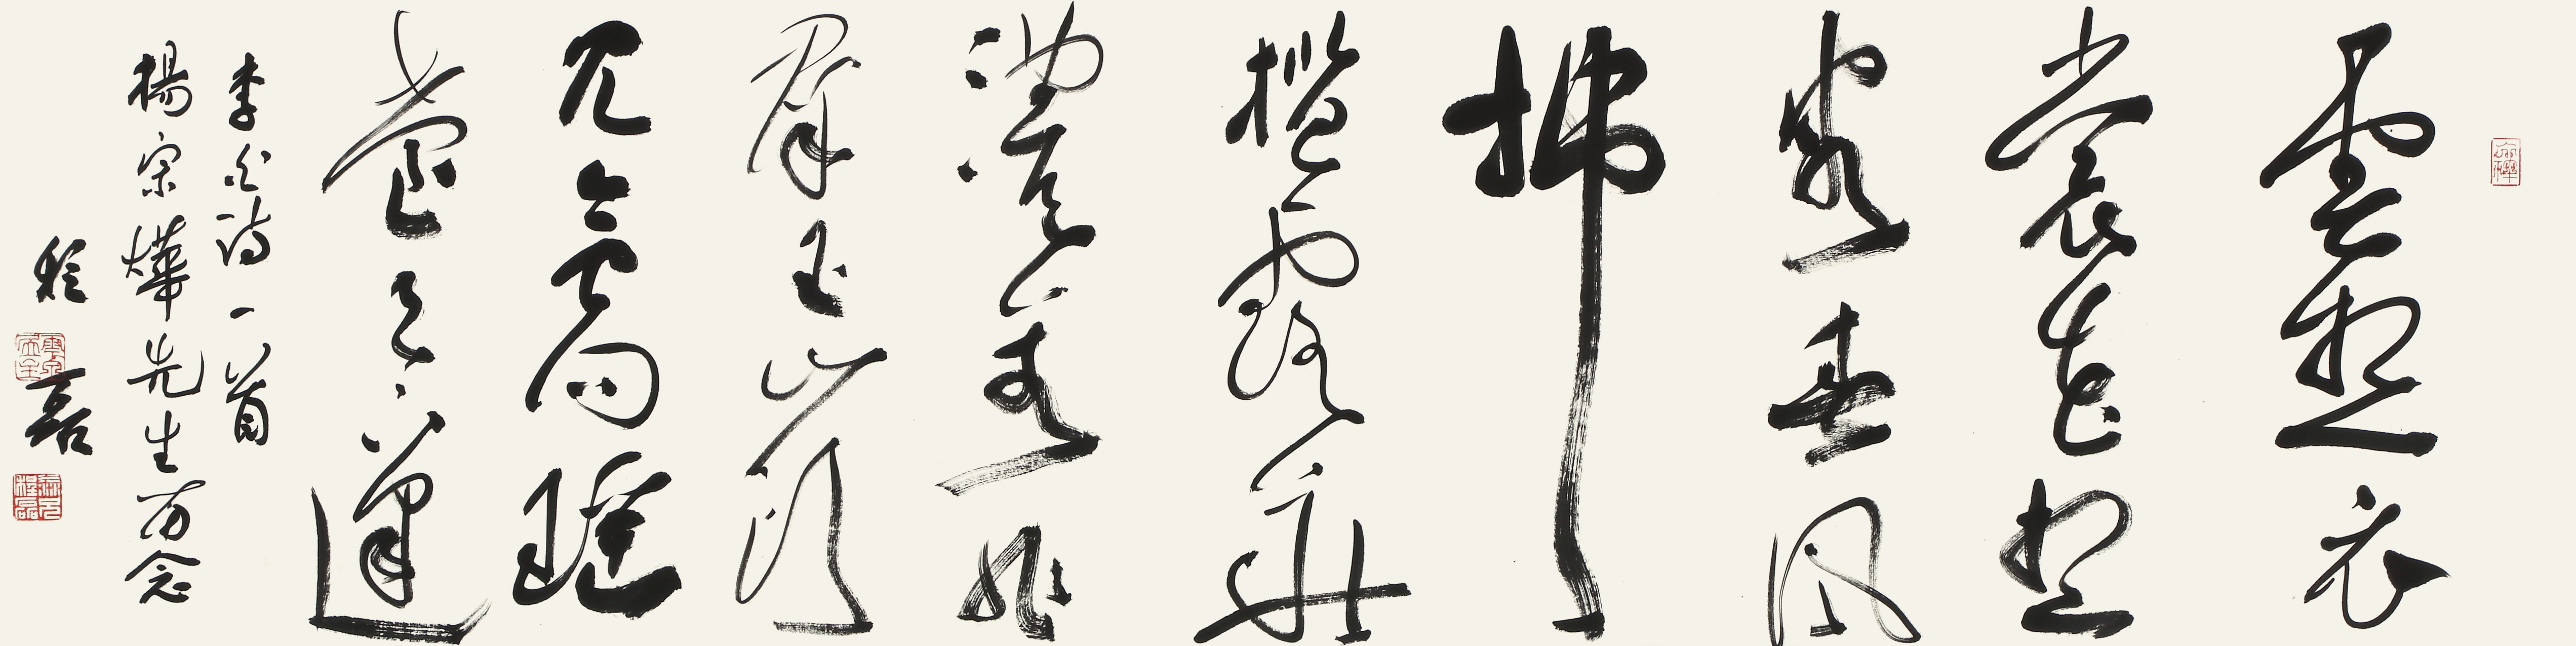 雲想衣
裳花想
容春風
拂
檻露華
濃若非
群玉山頭
見會向瑤
臺月下逢
李白詩一首
楊宗燁先生存念